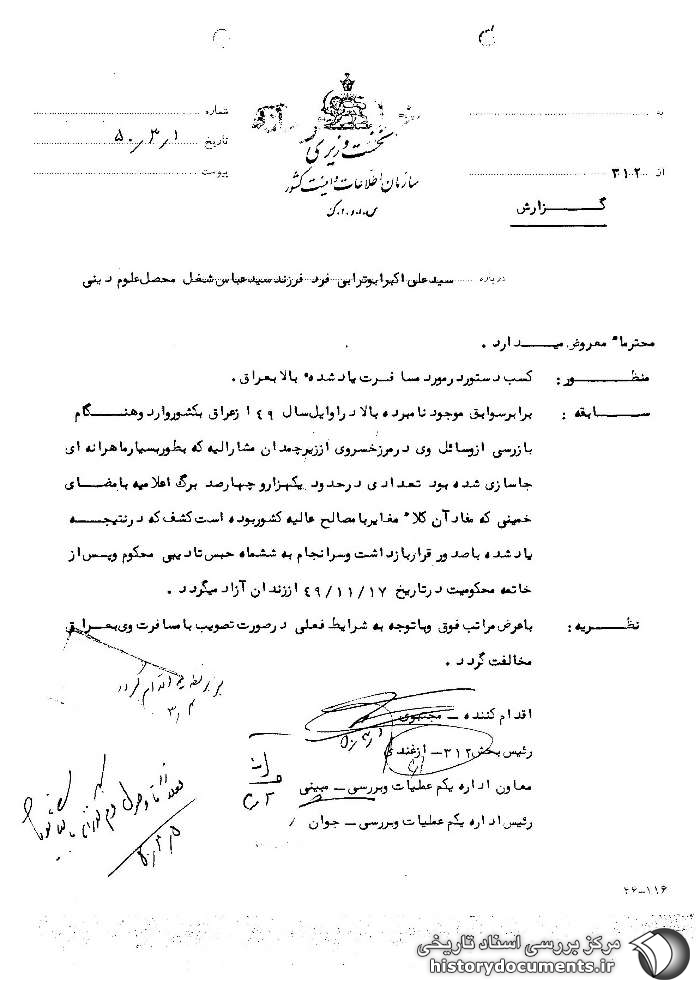 به
شماره
نخست وزیری
تاریخ ۵۰/۳/۱
سازمان اطلاعات و امنیت کشور
پیوست
از ۳۱۲
س.ا.و.ا.ک
گزارش
درباره سید علی اکبر ابوترابی فرد فرزند سید عباس شغل محصل علوم دینی
محترما" معروض میدارد .
منظور : کسب دستور در مورد مسافرت یاد شده بالا بعراق .
سابقه : برابر سوابق موجود نامبرده بالا در اوایل سال ۴۹ از عراق بکشور وارد و هنگام
بازرسی از وسائل وی در مرز خسروی از زیر چمدان مشارالیه که بطور بسیار ماهرانه ای
جاسازی شده بود تعدادی در حدود یکهزار و چهارصد برگ اعلامیه با مضای
خمینی که مفاد آن کلا" مغایر با مصالح عالیه کشور بوده است کشف که در نتیجه
یاد شده با صدور قرار بازداشت و سرانجام به ششماه حبس تادیبی محکوم و پس از
خاتمه محکومیت در تاریخ ۴۹/۱۱/۱۷ از زندان آزاد میگردد .
نظریه : با عرض مراتب فوق و با توجه به شرایط فعلی در صورت تصویب با مسافرت وی بعراق
مخالفت گردد .
برابر نظریه اقدام گردد
۳/۴
اقدام کننده - مجتبوی
رئیس بخش ۳۱۲ - ازغندی
معاون اداره یکم عملیات و بررسی - مبینی
رئیس اداره یکم عملیات و بررسی - جوان
۲۶-۱۱۶
مرکز بررسی اسناد تاریخی
historydocuments.ir